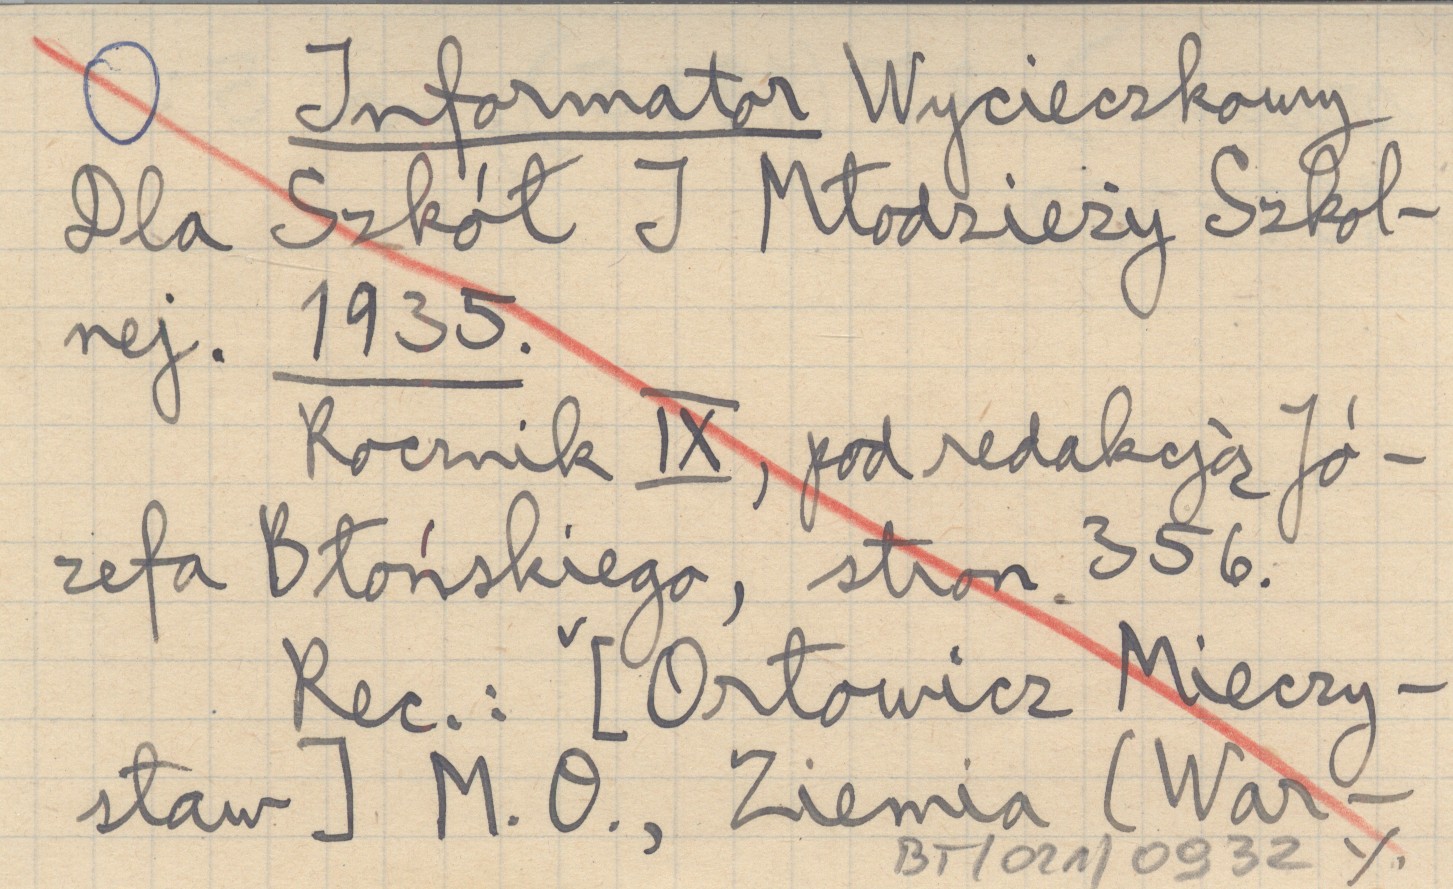 Informator Wycieczkowy
Dla Szkół I Młodzieży Szkol-
nej. 1935.
Rocznik IX, pod redakcją Jó-
zefa Błońskiego, stron 356.
Rec.: [Orłowicz Mieczy-
sław] M. O., Ziemia (War-
BT/021/0932 ./.